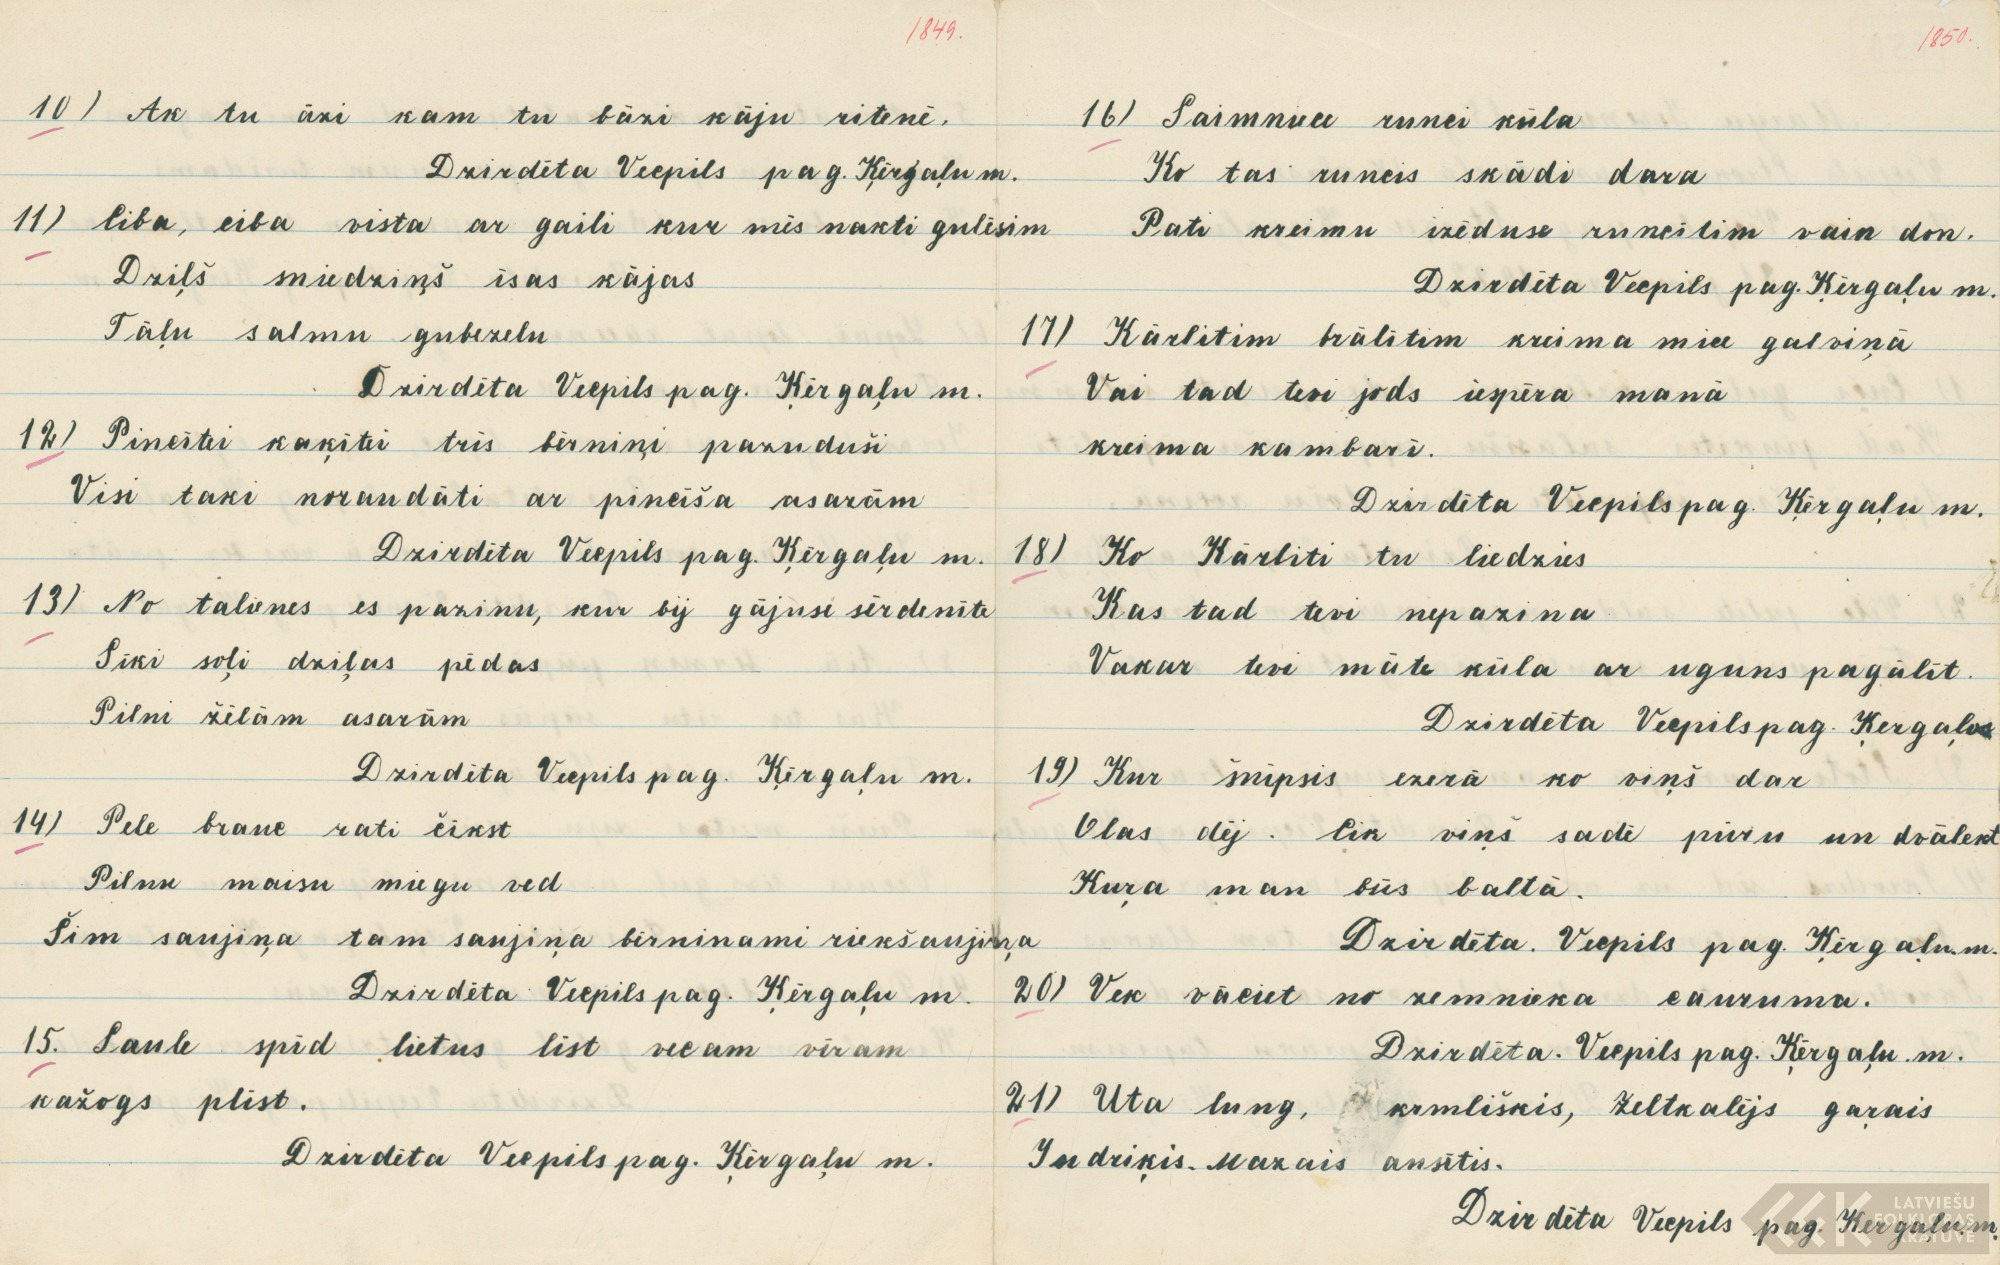 1849.
10) Ak tu āzi kam tu bāzi kāju ritenē.
Dzirdēta Vecpils pag. Ķērgaļu m.
11) Ciba, ciba vista ar gaili kur mēs nakti gulēsim
Dziļš miedziņš īsas kājas
Tāļu salmu gubezelu
Dzirdēta Vecpils pag. Ķērgaļu m.
12) Pincītei kaķītei trīs bērniņi pazuduši
Visi taki noraudāti ar pincīša asarām
Dzirdēta Vecpils pag. Ķērgaļu m.
13) No talienes es pazinu, kur bij gājuse sērdenīte
Sīki soļi dziļas pēdas
Pilni žēlām asarām
Dzirdēta Vecpils pag. Ķērgaļu m.
14) Pele brauc rati čīkst
Pilnu maisu miegu ved
Šim saujiņa tam saujiņa bērninami riekšaujiņa
Dzirdēta Vecpils pag. Ķērgaļu m.
15. Saule spīd lietus līst vecam vīram
kažogs plīst.
Dzirdēta Vecpils pag. Ķērgaļu m.
1850.
16) Saimniece runci kūla
Ko tas runcis skādi dara
Pati kreimu izēduse runcītim vain don.
Dzirdēta Vecpils pag. Ķērgaļu m.
17) Kārlītim brālītim kreima miec galviņā
Vai tad tevi jods iespēra manā
kreima kambarī.
Dzirdēta Vecpils pag. Ķērgaļu m.
18) Ko Kārlīti tu liedzies
Kas tad tevi nepazina
Vakar tevi māte kūla ar uguns pagālīt.
Dzirdēta Vecpils pag. Ķergaļu
19) Kur šnīpsis ezerā ko viņš dar
Olas dēj. Cik viņš sadē pūru un dvālekt
Kuŗa man būs baltā.
Dzirdēta. Vecpils pag. Ķērgaļu. m.
20) Vek vāciet no zemnieka cauruma.
Dzirdēta. Vecpils pag. Ķērgaļu. m.
21) Uta lung, krmliškis, Želtkalējs gaŗais
Indriķis. Mazais ansītis.
Dzirdēta Vecpils pag. Ķergaļu. m.
LATVIEŠU
FOLKLORAS
KRĀTUVE